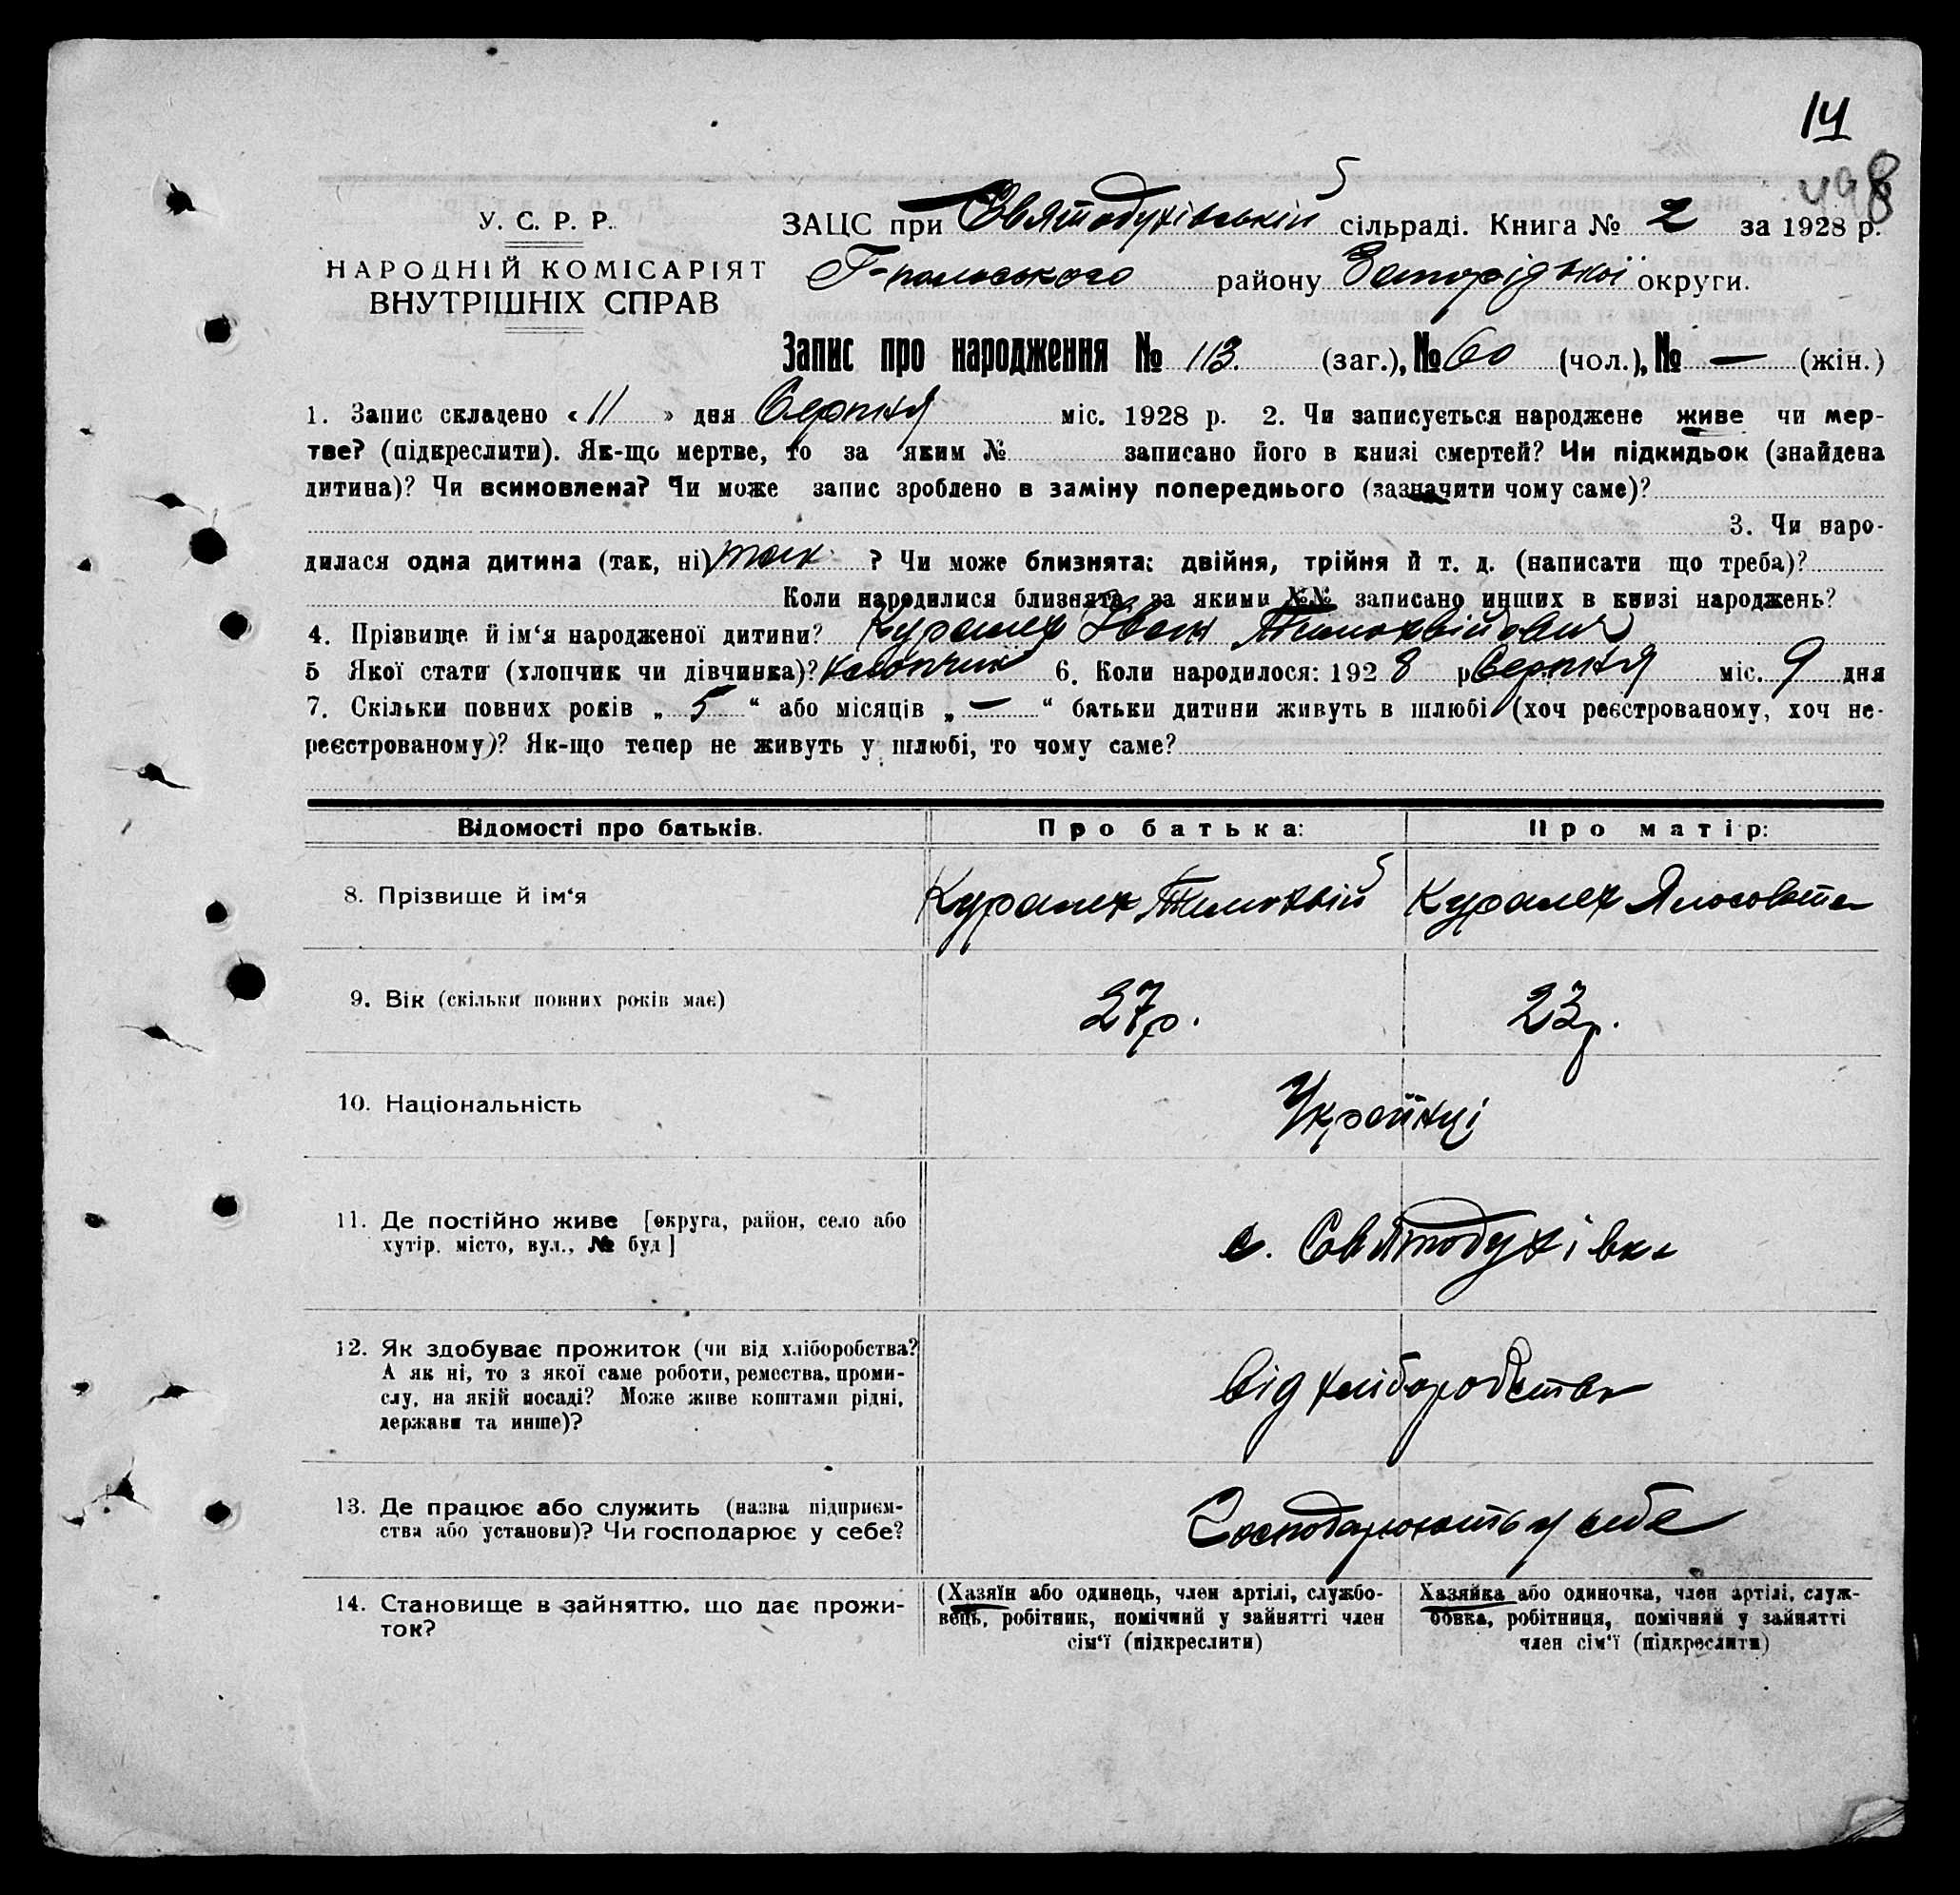 14
498
У. С. Р. Р.
НАРОДНІЙ КОМІСАРІЯТ
ВНУТРІШНІХ СПРАВ
ЗАЦС при Святодухівській сільраді. Книга № 2 за 1928 р.
Г-польського району Запорізької округи.
Запис про народження № 113. (заг.), № 60 (чол.), № — (жін.)
1. Запис складено « 11 » дня Серпня міс. 1928 р. 2. Чи записується народжене живе чи мер-
тве? (підкреслити). Як-що мертве, то за яким № записано його в книзі смертей? Чи підкидьок (знайдена
дитина)? Чи всиновлена? Чи може запис зроблено в заміну попереднього (зазначити чому саме)?
3. Чи наро-
дилася одна дитина (так, ні) так ? Чи може близнята: двійня, трійня й т. д. (написати що треба)?
Коли народилися близнята, за якими №№ записано инших в книзі народжень?
4. Прізвище й ім‘я народженої дитини? Курапех Іван Тимохвійович
5 Якої стати (хлопчик чи дівчинка)? хлопчик 6. Коли народилося: 192 8 р Серпня міс. 9 дня
7. Скільки повних років „ 5 “ або місяців „ — “ батьки дитини живуть в шлюбі (хоч реєстрованому, хоч не-
реєстрованому)? Як-що тепер не живуть у шлюбі, то чому саме?
Відомості про батьків. Про батька: Про матір:
8. Прізвище й ім‘я Курапех Тимохвій Курапех Ялосовета
9. Вік (скільки повних років має) 27 р. 23 р.
10. Національність Українці
11. Де постійно живе [округа, район, село або
хутір. місто, вул., № буд ] с. Святодухівка
12. Як здобуває прожиток (чи від хліборобства?
А як ні, то з якої саме роботи, ремества, проми-
слу, на якій посаді? Може живе коштами рідні,
держави та инше)? від хліборобства
13. Де працює або служить (назва підприєм-
ства або установи)? Чи господарює у себе? Господарюють у себе
14. Становище в зайняттю, що дає прожи-
ток?
(Хазяїн або одинець, член артілі, службо-
вець, робітник, помічний у зайнятті член
сім‘ї (підкреслити)
Хазяйка або одиночка, член артілі, служ-
бовка, робітниця, помічний у зайнятті
член сім‘ї (підкреслити)